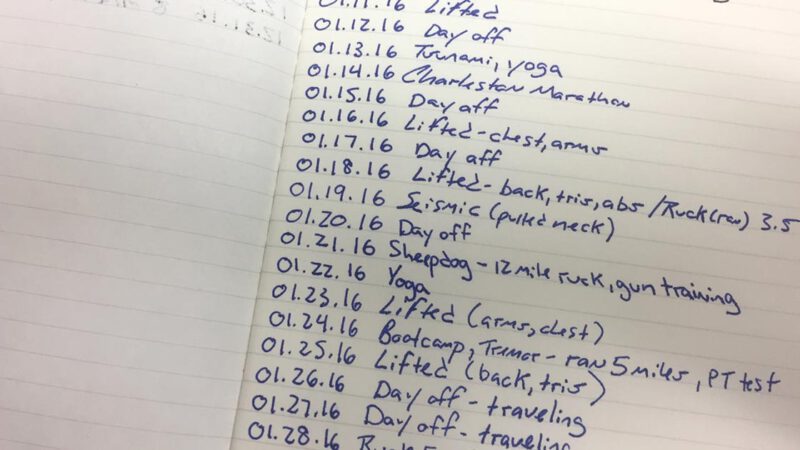 01.11.16 Lifted
01.12.16 Day off
01.13.16 Tsunami, yoga
01.14.16 Charleston Marathon
01.15.16 Day off
01.16.16 Lifted - chest, arms
01.17.16 Day off
01.18.16 Lifted - back, tris, abs / Ruck (ran) 3.5
01.19.16 Seismic (pulled neck)
01.20.16 Day off
01.21.16 Sheepdog - 12 mile ruck, gun training
01.22.16 Yoga
01.23.16 Lifted (arms, chest)
01.24.16 Bootcamp, Tremor - ran 5 miles, PT test
01.25.16 Lifted (back, tris)
01.26.16 Day off - traveling
01.27.16 Day off - traveling
01.28.16